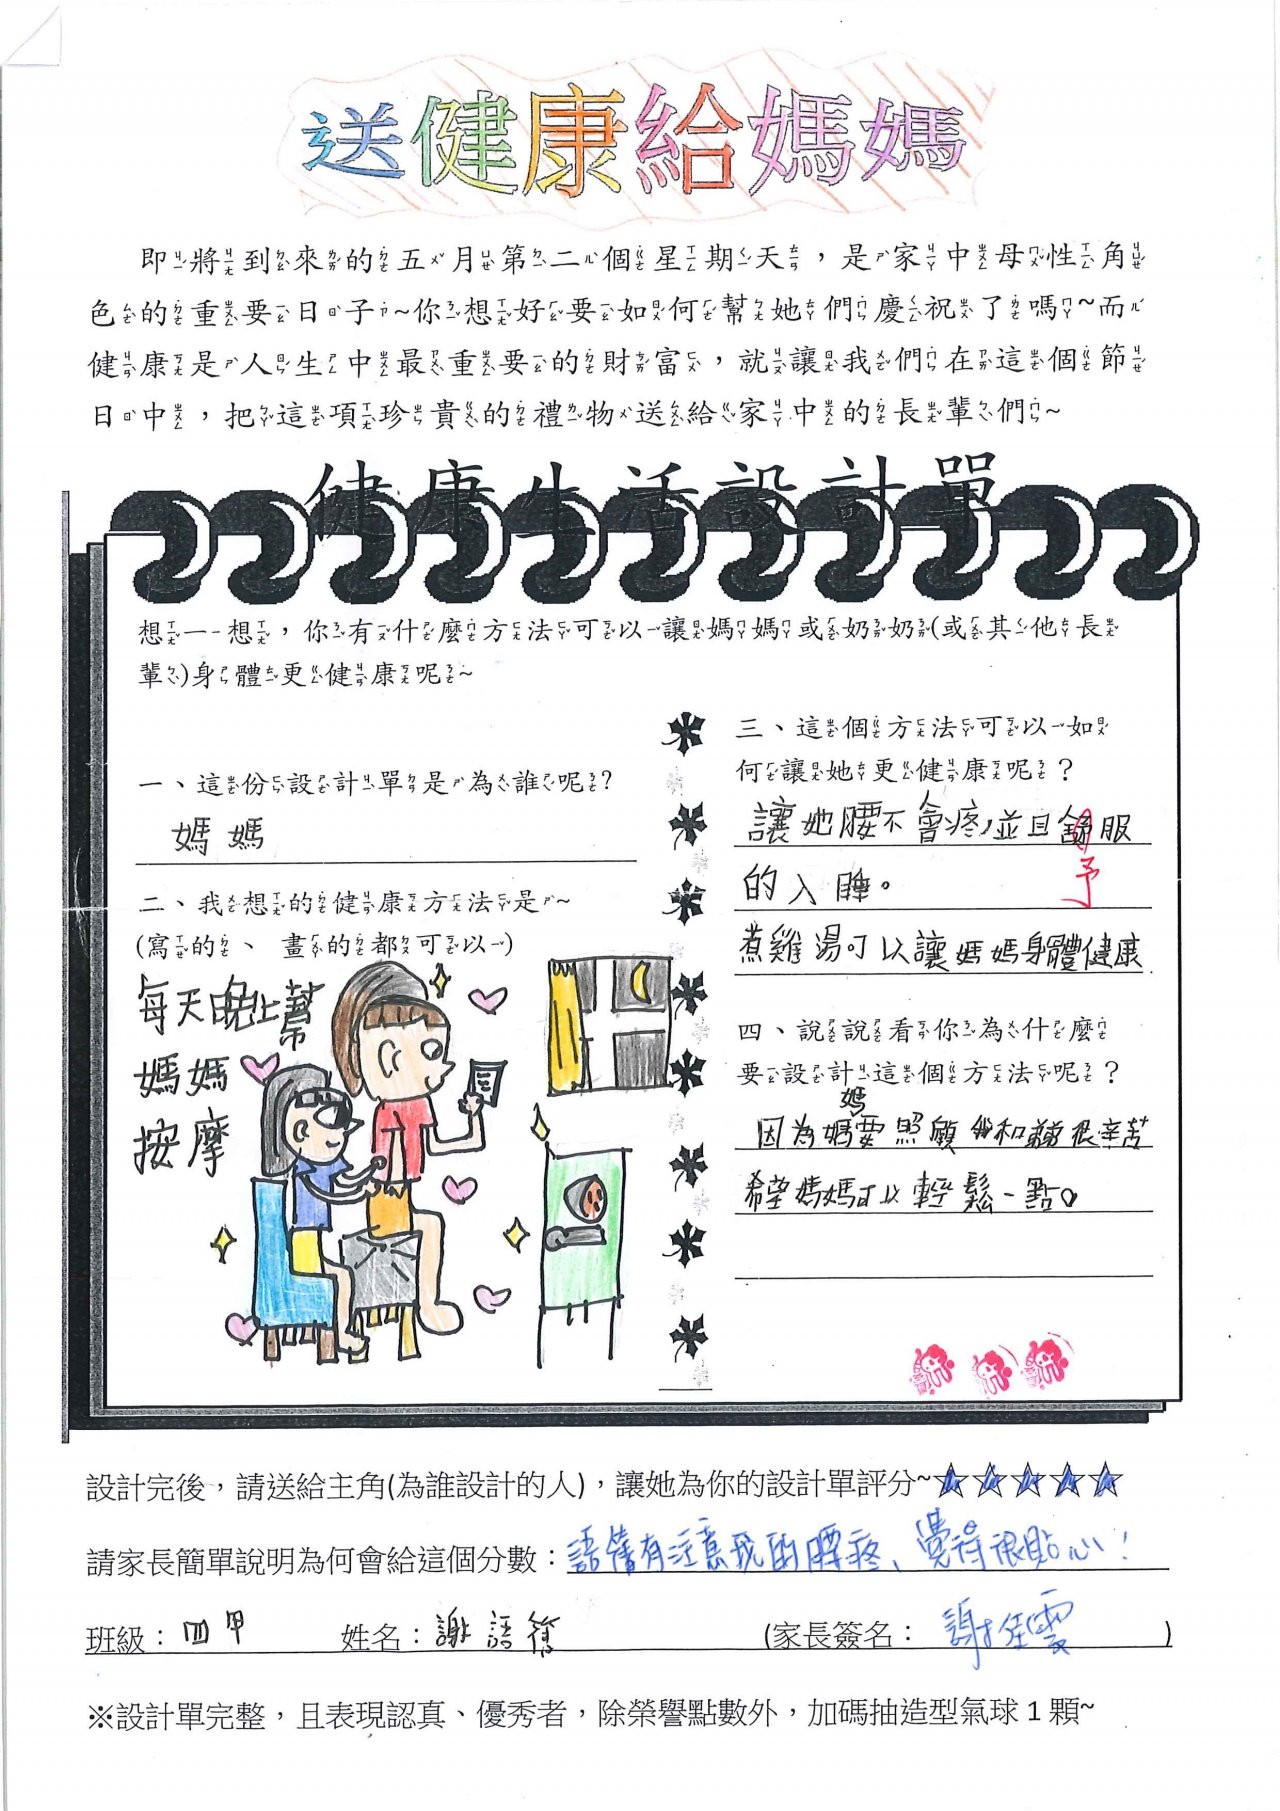 送健康給媽媽
即將到來的五月第二個星期天，是家中母性角
色的重要日子~你想好要如何幫她們慶祝了嗎~而
健康是人生中最重要的財富，就讓我們在這個節
日中，把這項珍貴的禮物送給家中的長輩們~
健康生活設計單
想一想，你有什麼方法可以讓媽媽或奶奶(或其他長
輩)身體更健康呢~
一、這份設計單是為誰呢?
媽媽
二、我想的健康方法是~
(寫的、 畫的都可以)
每天晚上幫
媽媽
按摩
三、這個方法可以如
何讓她更健康呢？
讓她腰不會疼，並且舒服
予
的入睡。
煮雞湯可以讓媽媽身體健康
四、說說看你為什麼
要設計這個方法呢？
因為媽媽要照顧我和弟弟很辛苦
希望媽媽可以輕鬆一點。
設計完後，請送給主角(為誰設計的人)，讓她為你的設計單評分~☆☆☆☆☆
請家長簡單說明為何會給這個分數：語有注意我的腰疼、覺得很貼心！
班級：四甲 姓名：謝語 (家長簽名：謝佳雲)
※設計單完整，且表現認真、優秀者，除榮譽點數外，加碼抽造型氣球1顆~